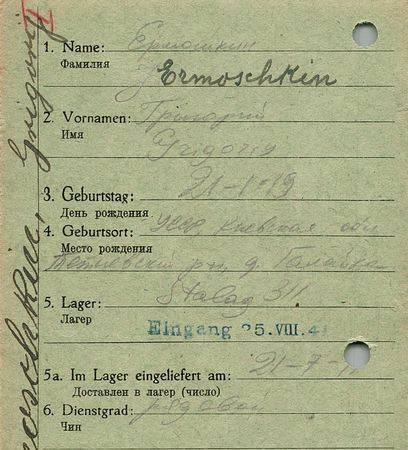 1. Name: Ермошкин
Фамилия
Ermoschkin
2. Vornamen: Григорий
Имя
Grigoriy
3. Geburtstag: 21-1-19
День рождения
4. Geburtsort: УССР, Киевская обл
Место рождения
р-н, д.
5. Lager: Stalag 311
Лагер
Eingang 25.VIII.4
5a. Im Lager eingeliefert am: 21-7-
Доставлен в лагер (число)
6. Dienstgrad: рядовой
Чин
Grigorij